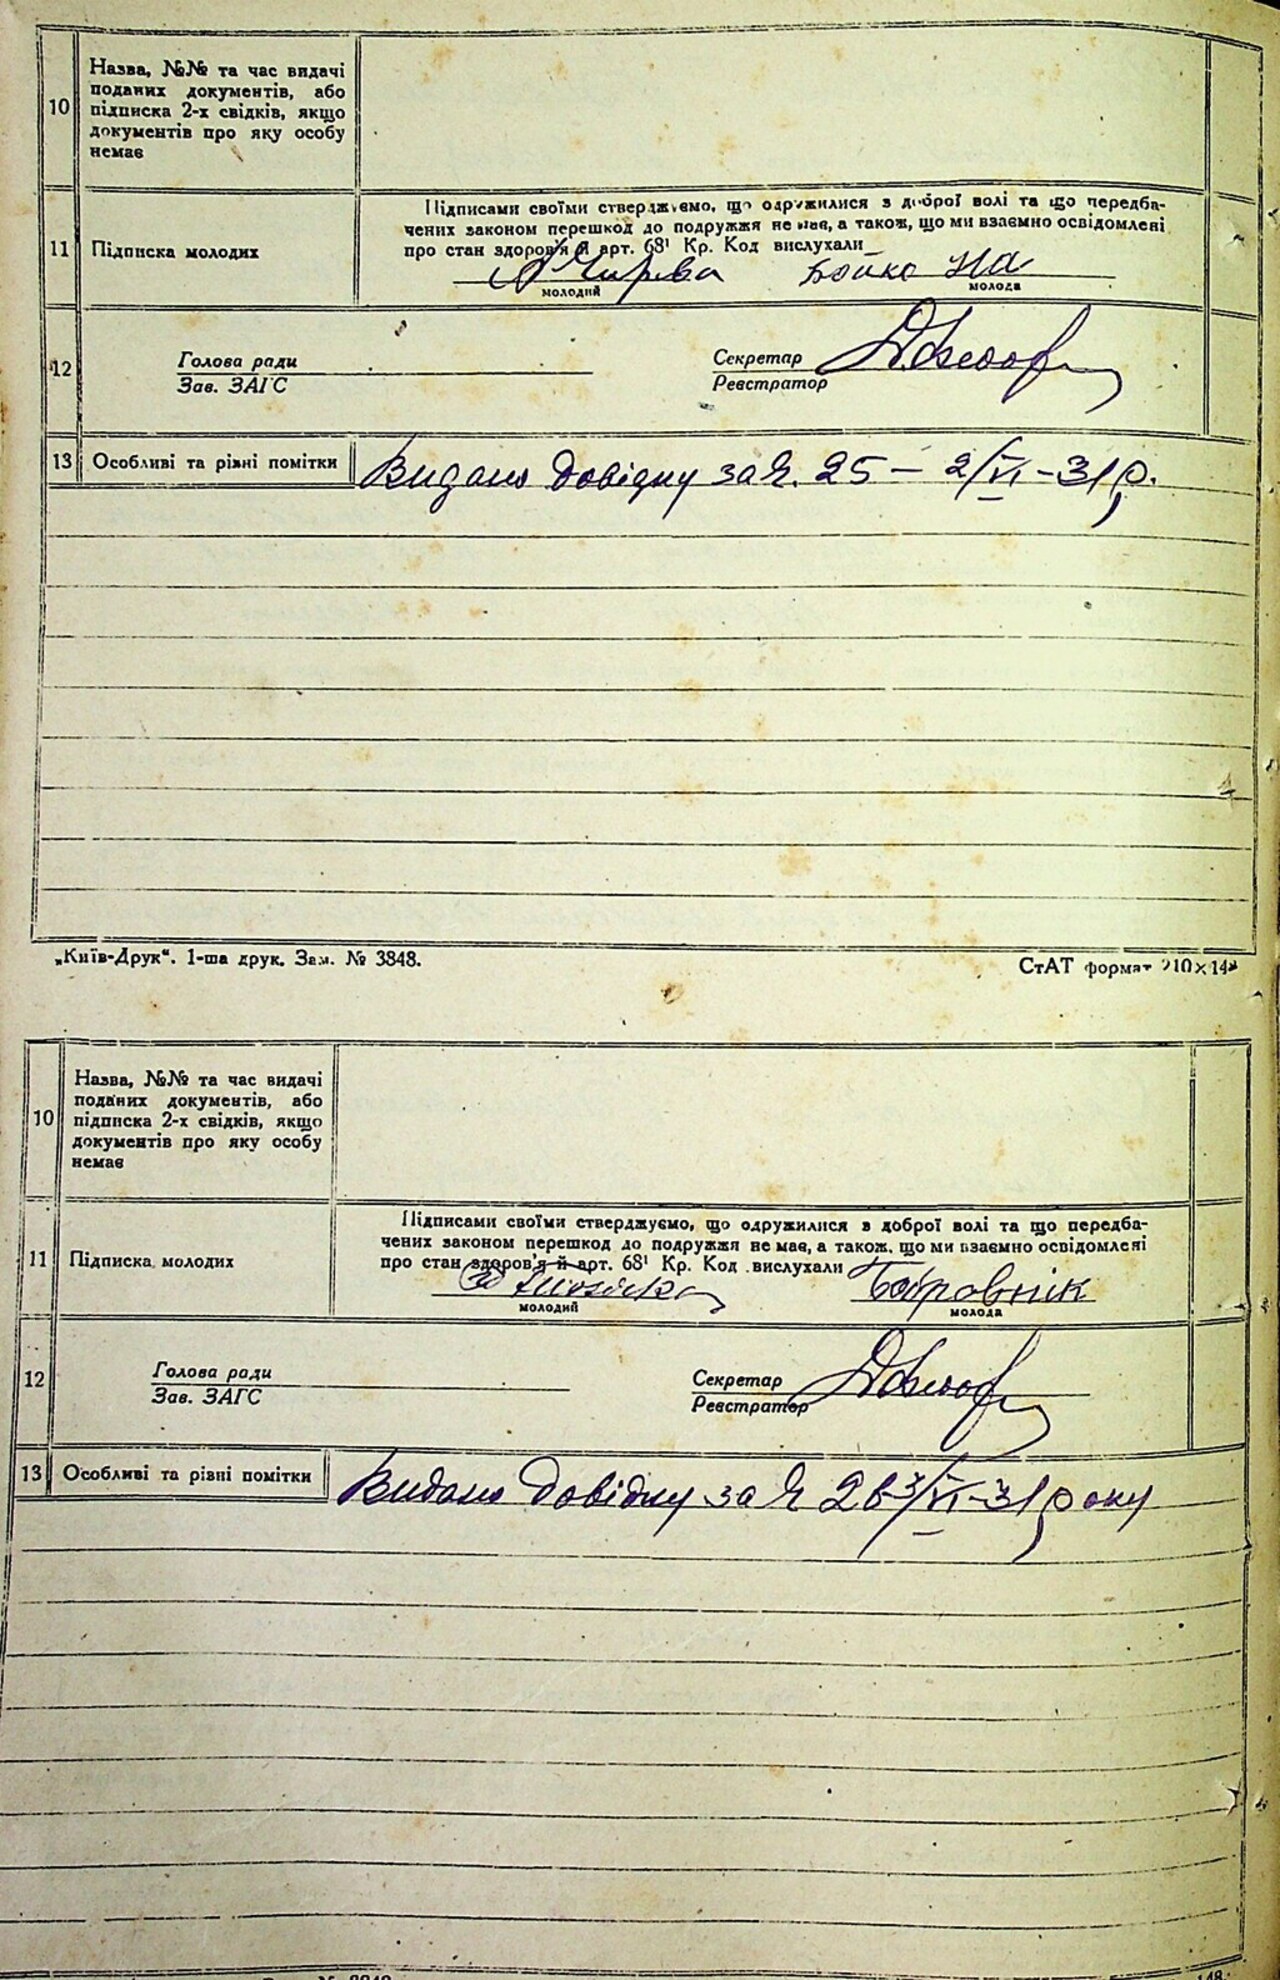 10
Назва, №№ та час видачі
поданих документів, або
підписка 2-х свідків, якщо
документів про яку особу
немає
11
Підписка молодих
Підписами своїми стверджуємо, що одружилися з доброї волі та що передба-
чених законом перешкод до подружжя не має, а також, що ми взаємно освідомлені
про стан здоров'я й арт. 68¹ Кр. Код вислухали
Бойко На
молодий
молода
12
Голова ради
Зав. ЗАГС
Секретар
Реєстратор
13
Особливі та різні помітки
Видано довідку за ч. 25 – 2/VI – 31 р.
„Київ-Друк“. 1-ша друк. Зам. № 3848.
СтАТ формат 210×148
10
Назва, №№ та час видачі
поданих документів, або
підписка 2-х свідків, якщо
документів про яку особу
немає
11
Підписка молодих
Підписами своїми стверджуємо, що одружилися з доброї волі та що передба-
чених законом перешкод до подружжя не має, а також, що ми взаємно освідомлені
про стан здоров'я й арт. 68¹ Кр. Код вислухали
молодий
молода
12
Голова ради
Зав. ЗАГС
Секретар
Реєстратор
13
Особливі та різні помітки
Видано довідку за ч 26 3/VI–31 року